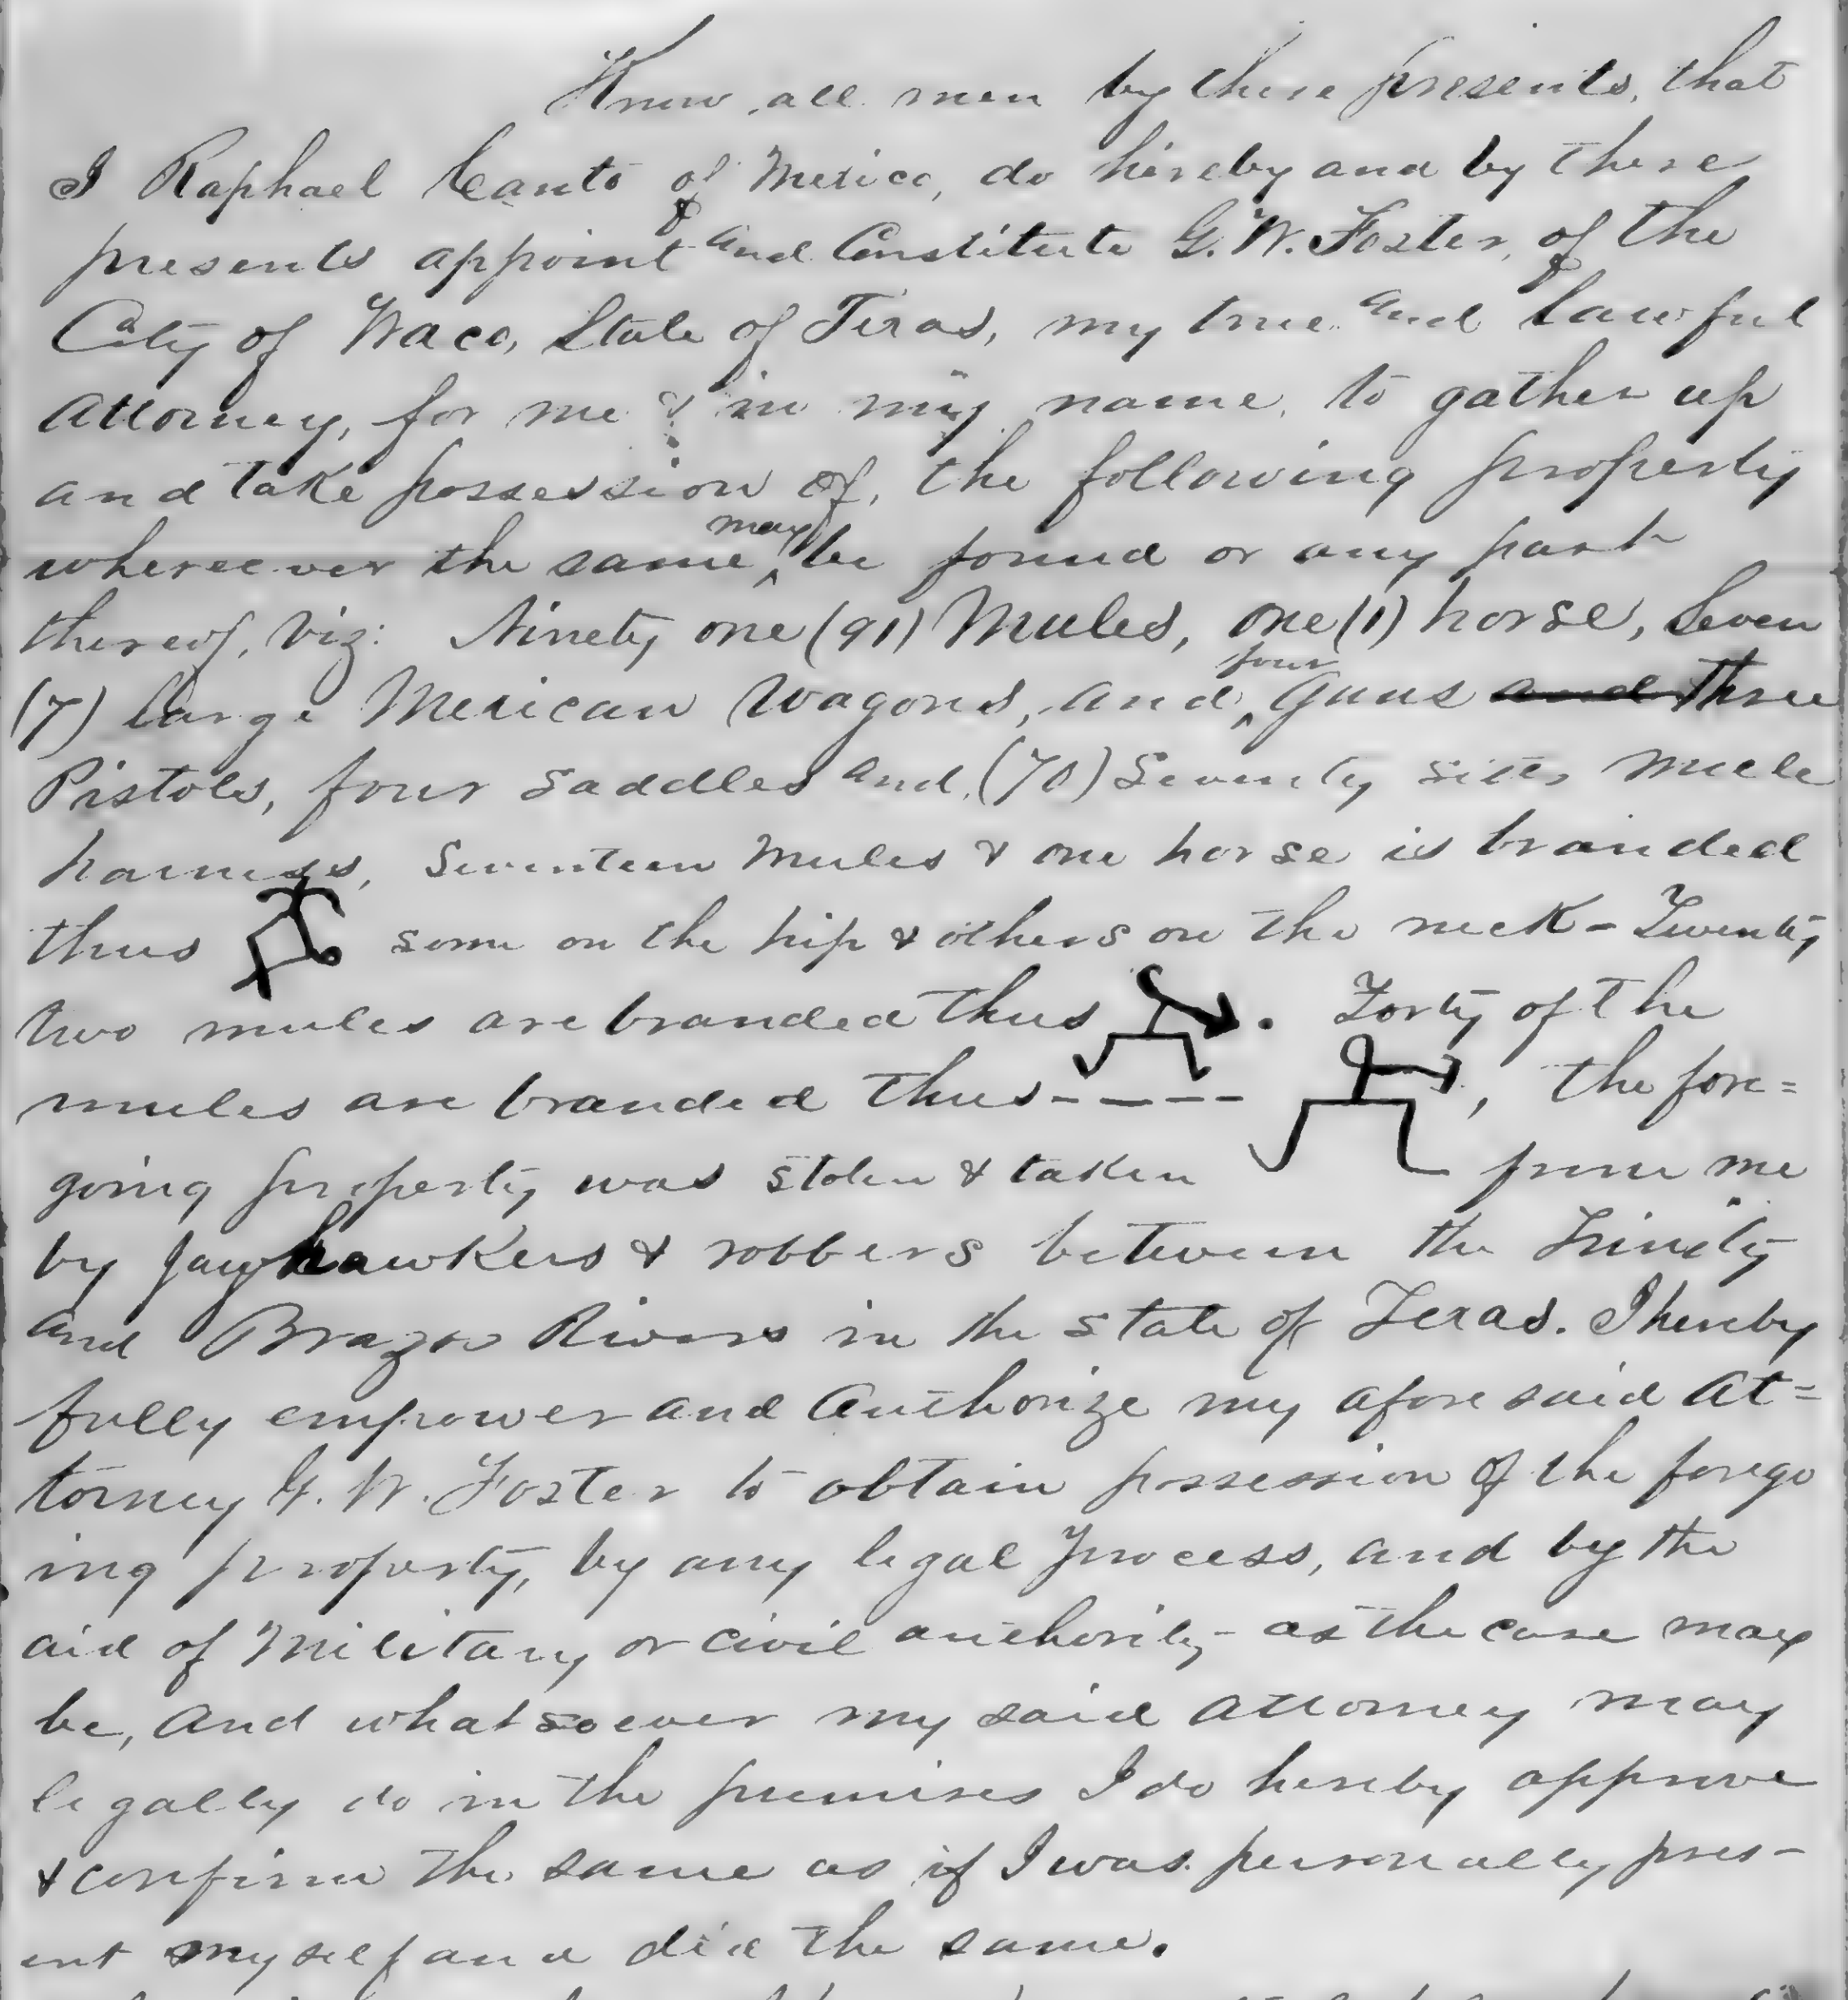 Know all men by these presents, that
I Raphael Cantu of Mexico, do hereby and by these
presents appoint and Constitute G. W. Foster, of the
City of Waco, State of Texas, my true and lawful
attorney, for me & in my name, to gather up
and take possession of, the following property
whereever the same may be found or any part
thereof, Viz: Ninety one (91) Mules, one (1) horse, Seven
(7) large Mexican Wagons, and four guns and three
Pistols, four saddles and (70) Seventy sitts mule
harness, Seventeen Mules & one horse is branded
thus some on the hip & others on the neck - Twenty
two mules are branded thus. Forty of the
mules are branded thus - - - -, the fore=
going property was stolen & taken from me
by Jayhawkers & robbers between the Trinity
and Brazos Rivers in the state of Texas. I hereby
fully empower and authorize my aforesaid at=
torney G. W. Foster to obtain possession of the forego
ing property, by any legal process, and by the
aid of Military or civil authority - as the case may
be, and whatsoever my said attorney may
legally do in the premises I do hereby approve
& confirm the same as if I was personally pres-
ent myself and did the same.